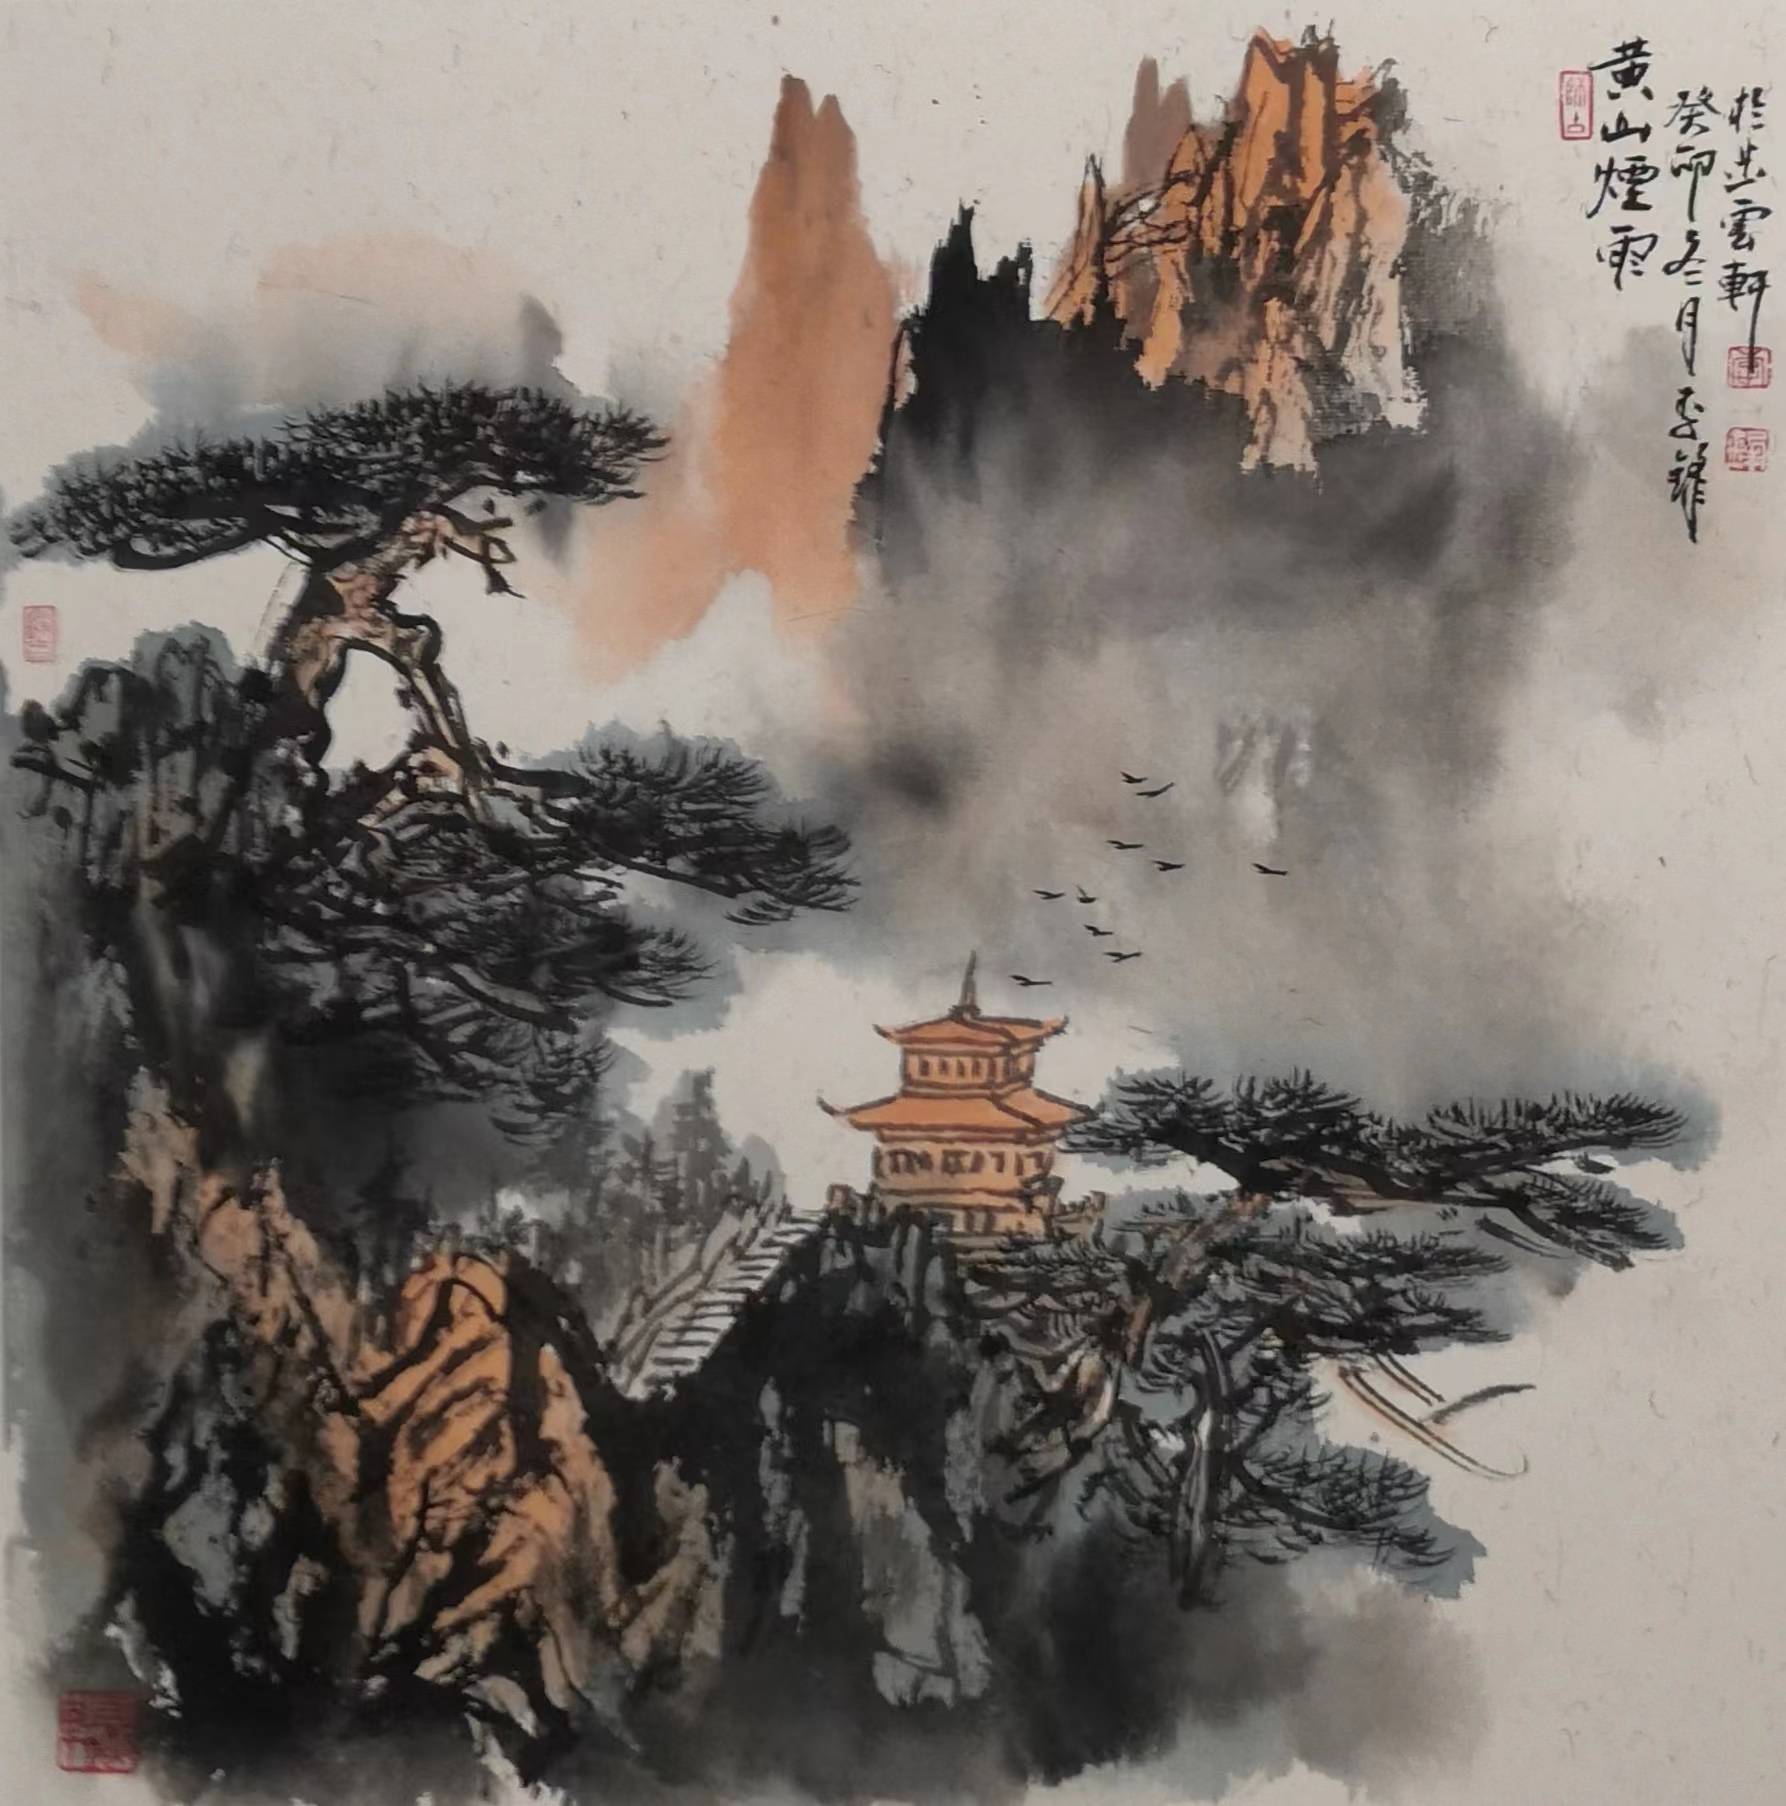 黄山煙雨
癸卯冬月季鋒
於半雲軒